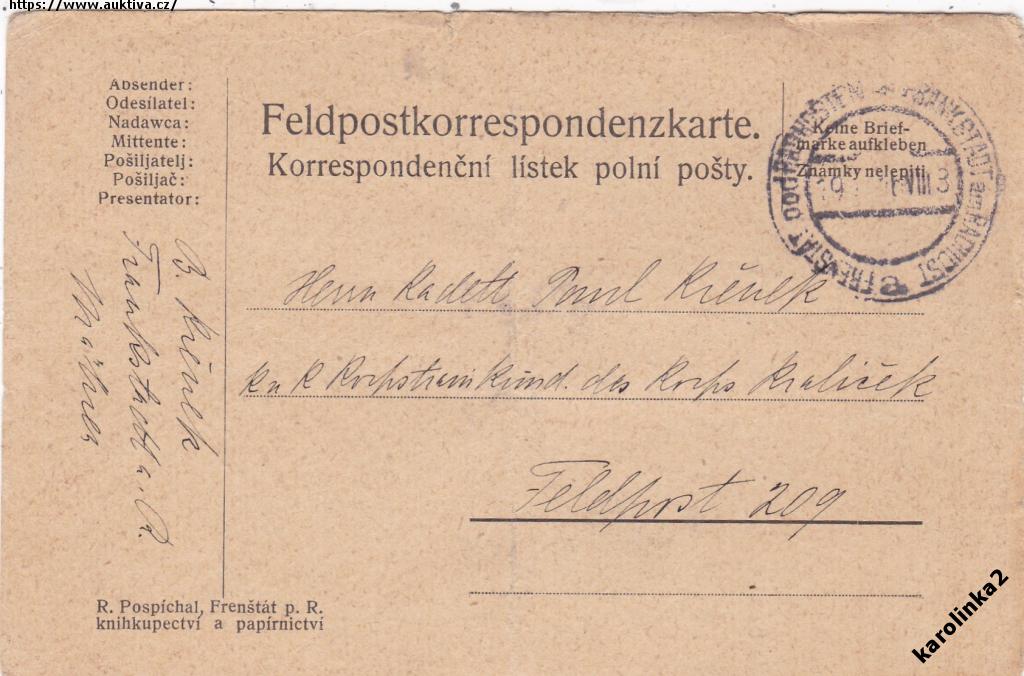 https://www.auktiva.cz/
Absender:
Odesílatel:
Nadawca:
Mittente:
Pošiljatelj:
Pošiljač:
Presentator:
Feldpostkorrespondenzkarte.
Korrespondenční lístek polní pošty.
Keine Brief-
marke aufkleben
Známky nelepiti
FRENŠTÁT POD RADHOŠTĚM
FRANKSTADT am RADHOST
VIII 3
Herrn Kadett Paul Křenek
k u k Korpstrainkmd. des Korps Kraliček
Feldpost 209
B Křenek
Frankstadt a. R.
Mähren
R. Pospíchal, Frenštát p. R.
knihkupectví a papírnictví
karolinka2